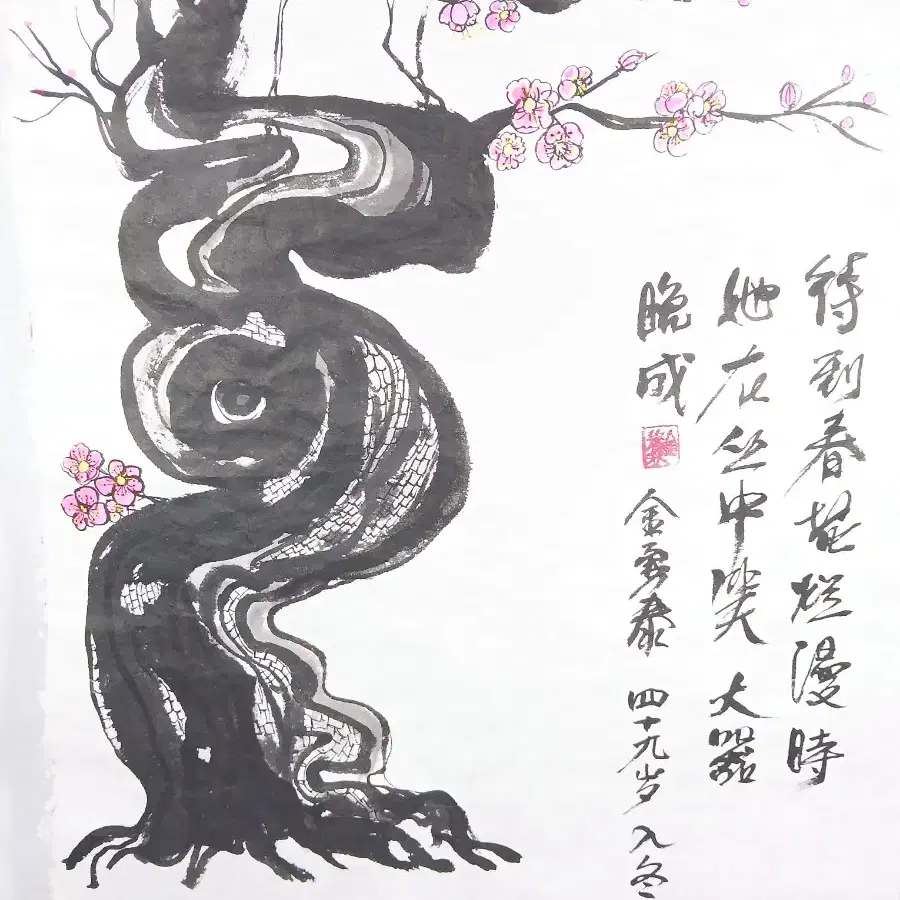 待到春花烂漫時
她在丛中笑 大器
晚成 金雲泰 四十九岁 入冬